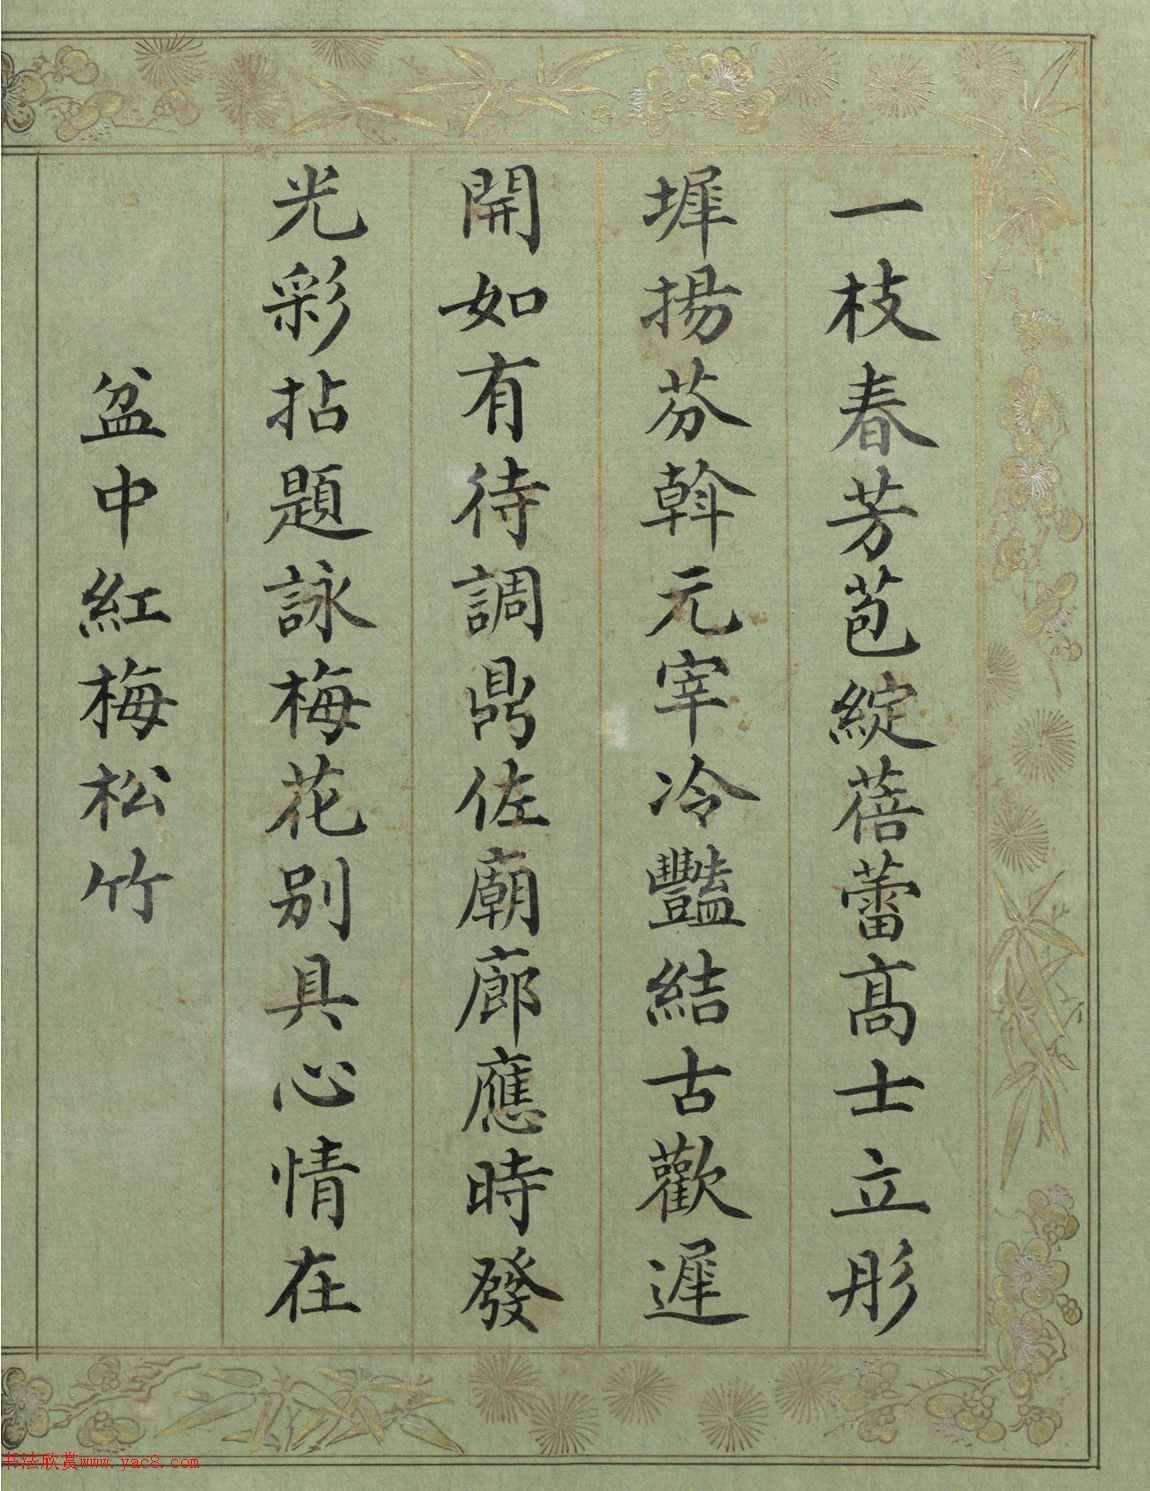 一枝春芳苞綻蓓蕾高士立彤
墀揚芬斡元宰冷豔結古歡遲
開如有待調鼎佐廟廊應時發
光彩拈題詠梅花別具心情在
盆中紅梅松竹
书法欣赏www.yac8.com